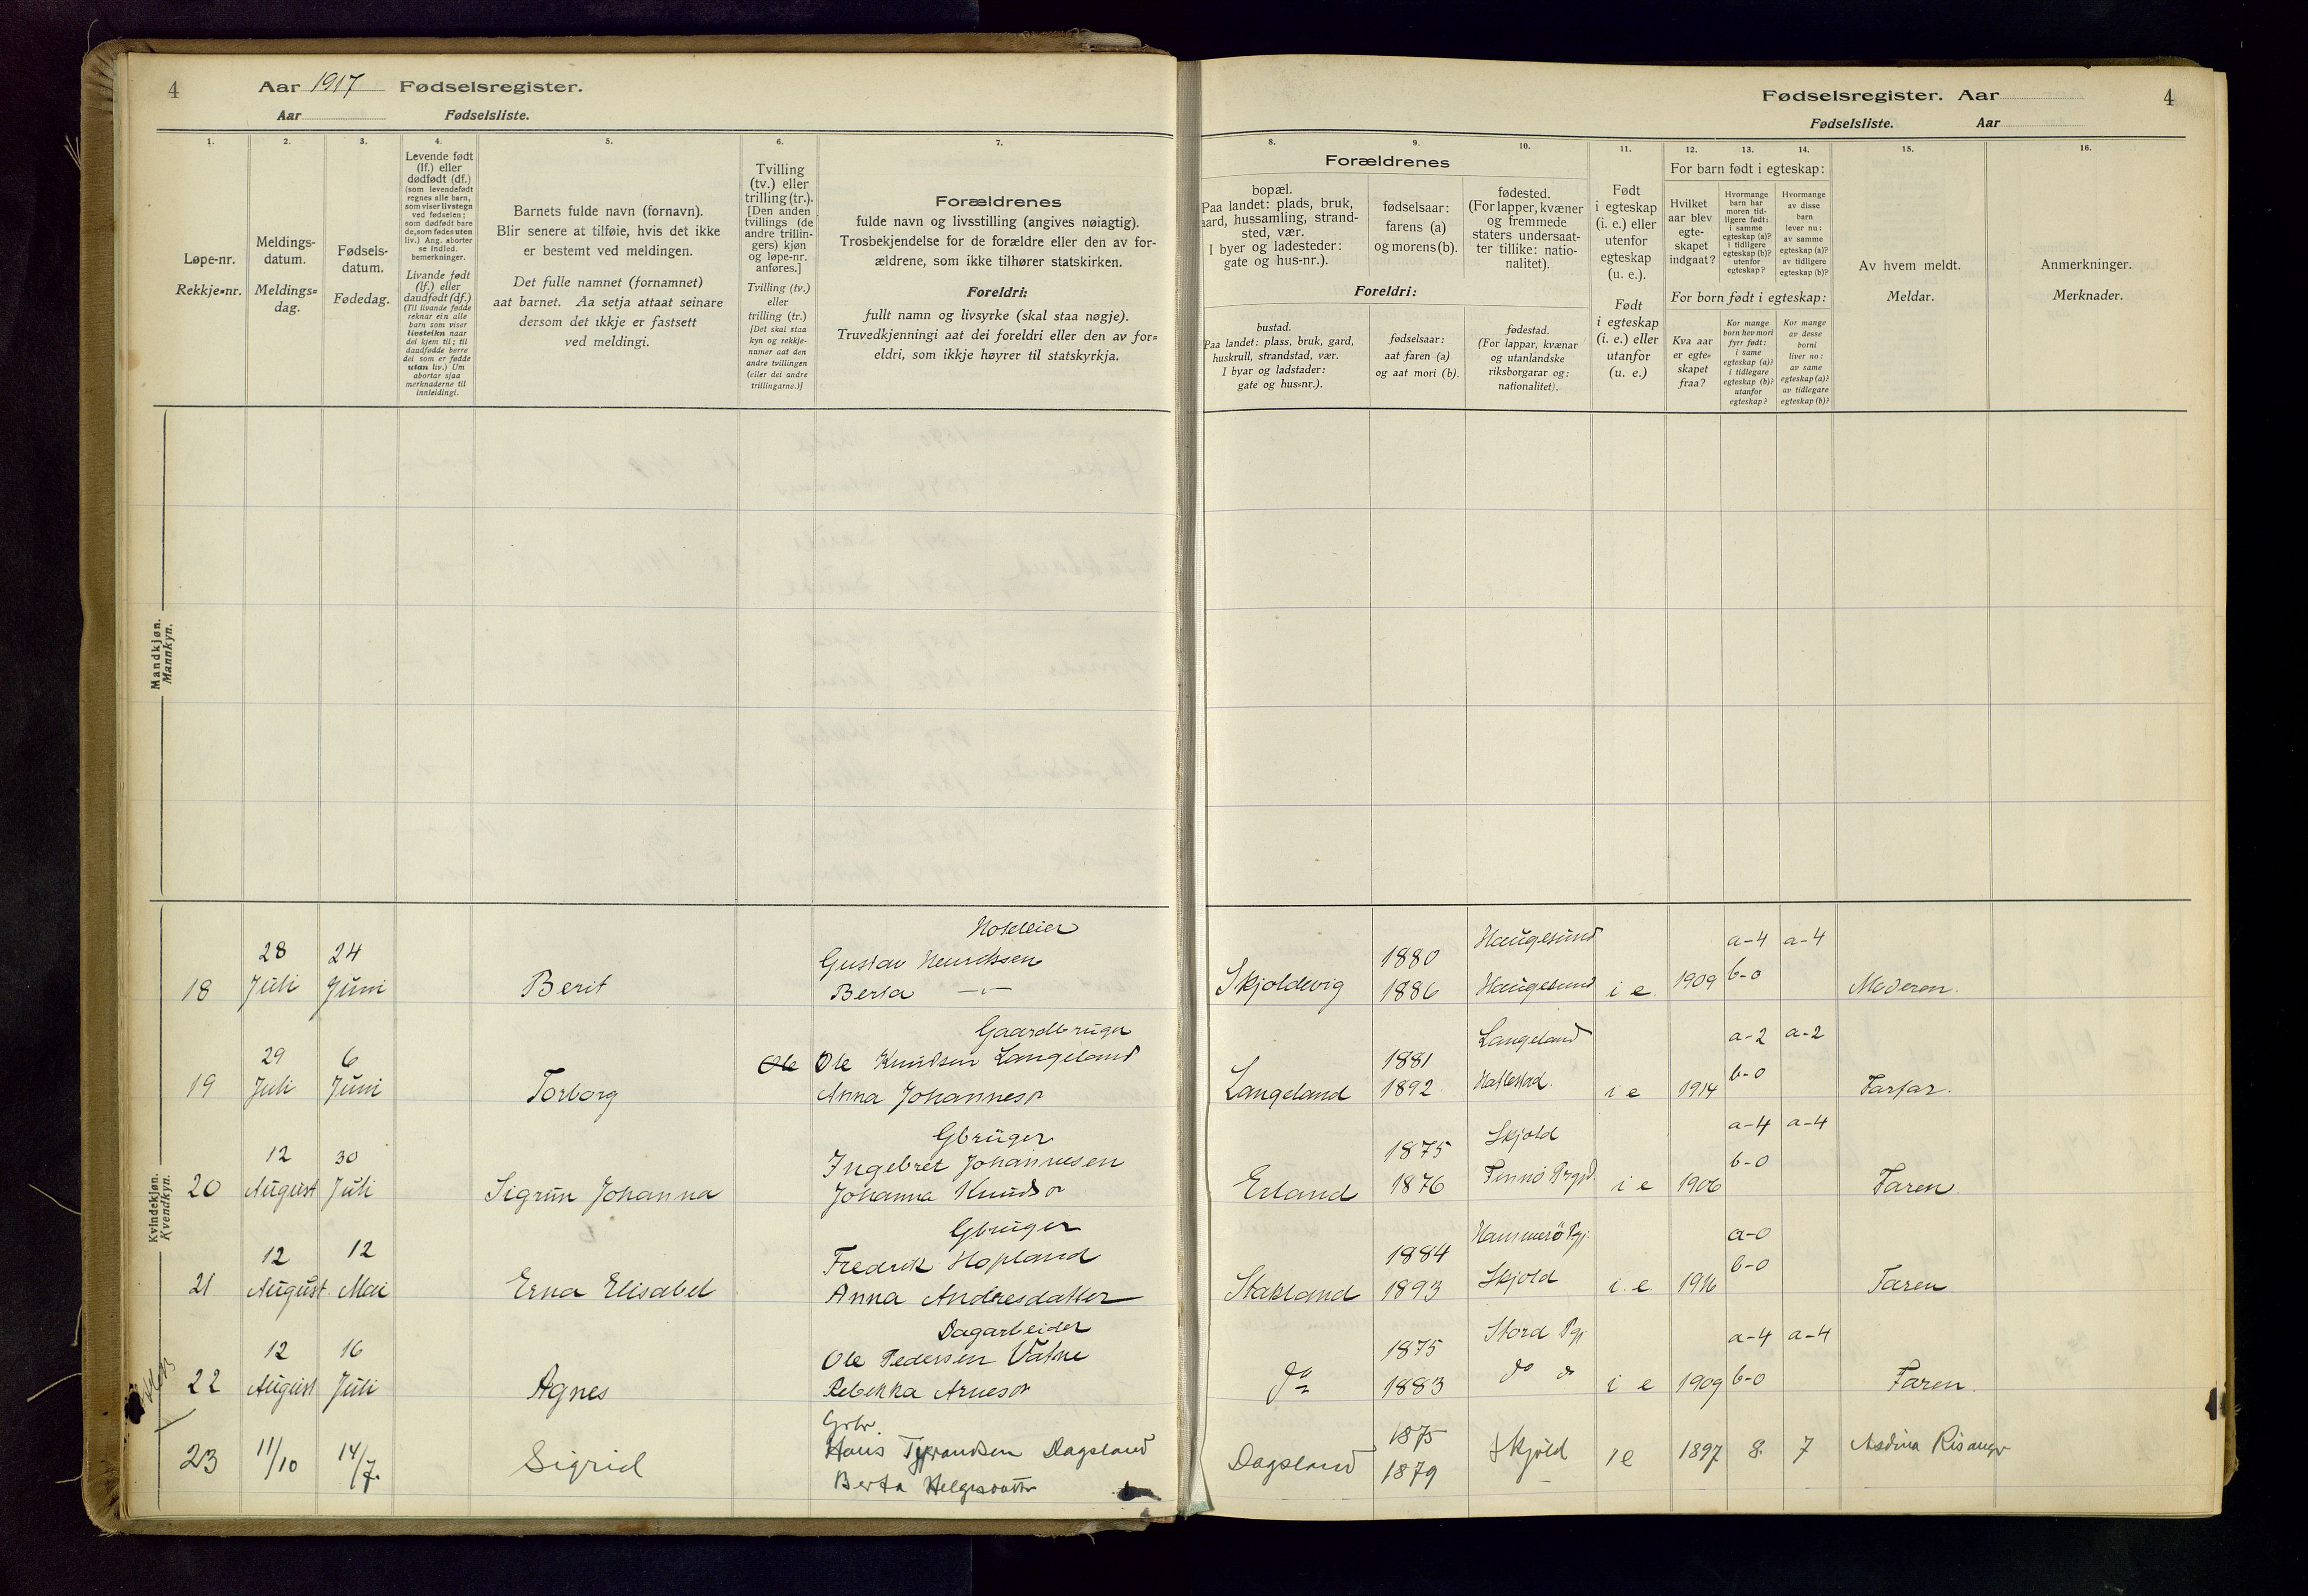 4
Aar 1917 Fødselsregister.
Aar Fødselsliste.
Fødselsregister. Aar
4
Fødselsliste. Aar
1. 2. 3. 4. 5. 6. 7. 8. 9. 10. 11. 12. 13. 14. 15. 16.
Løpe-nr.
Rekkje=nr.
Meldings-
datum.
Meldings=
dag.
Fødsels-
datum.
Fødedag.
Levende født
(lf.) eller
dødfødt (df.)
(som levendefødt
regnes alle barn,
som viser livstegn
ved fødselen;
som dødfødt bare
de, som fødes uten
liv.) Ang. aborter
se indled.
bemerkninger.
Livande født
(lf.) eller
daudfødt (df.)
(Til livande fødde
reknar ein alle
barn som viser
livsteikn naar
dei kjem til; til
daudfødde berre
dei som er fødde
utan liv.) Um
abortar sjaa
merknaderne til
innleidingi.
Barnets fulde navn (fornavn).
Blir senere at tilføie, hvis det ikke
er bestemt ved meldingen.
Det fulle namnet (fornamnet)
aat barnet. Aa setja attaat seinare
dersom det ikkje er fastsett
ved meldingi.
Tvilling
(tv.) eller
trilling (tr.).
[Den anden
tvillings (de
andre trillin-
gers) kjøn
og løpe-nr.
anføres.]
Tvilling (tv.)
eller
trilling (tr.)
[Det skal staa
kyn og rekkje-
numer aat den
andre tvillingen
(eller dei andre
trillingarne.)]
Forældrenes
fulde navn og livsstilling (angives nøiagtig).
Trosbekjendelse for de forældre eller den av for-
ældrene, som ikke tilhører statskirken.
Foreldri:
fullt namn og livsyrke (skal staa nøgje).
Truvedkjenningi aat dei foreldri eller den av for=
eldri, som ikkje høyrer til statskyrkja.
Forældrenes
bopæl.
Paa landet: plads, bruk,
aard, hussamling, strand-
sted, vær.
I byer og ladesteder:
gate og hus-nr.).
fødselsaar:
farens (a)
og morens (b).
fødested.
(For lapper, kvæner
og fremmede
staters undersaat-
ter tillike: natio-
nalitet).
Foreldri:
bustad.
Paa landet: plass, bruk, gard,
huskrull, strandstad, vær.
I byar og ladstader:
gate og hus=nr.).
fødselsaar:
aat faren (a)
og aat mori (b).
fødestad.
(For lappar, kvænar
og utanlandske
riksborgarar og:
nationalitet).
Født
i egteskap
(i. e.) eller
utenfor
egteskap
(u. e.).
Født
i egteskap
(i. e.) eller
utanfor
egteskap
(u. e.)
For barn født i egteskap:
Hvilket
aar blev
egte-
skapet
indgaat?
Hvormange
barn har
moren tid-
ligere født:
i samme
egteskap (a)?
i tidligere
egteskap (b)?
utenfor
egteskap?
Hvormange
av disse
barn
lever nu:
av samme
egteskap (a)?
av tidligere
egteskap (b)?
For born født i egteskap:
Kva aar
er egte=
skapet
fraa?
Kor mange
born hev mori
fyrr født:
i same
egteskap (a)?
i tidlegare
egteskap (b)?
utanfor
egteskap?
Kor mange
av desse
borni
liver no:
av same
egteskap (a)?
av tidlegare
egteskap (b)?
Av hvem meldt.
Meldar.
Anmerkninger.
Merknader.
Mandkjøn.
Mannkyn.
Kvindekjøn.
Kvendkyn.
Hoteleier
28 24 Gustav Henriksen 1880 Haugesund a-4 a-4
18 Juli Juni Berit Berta —"— Skjoldevig 1886 Haugesund i e. 1909 b-0 Moderen.
Gaardbruger
29 6 Ole Ole Knudsen Langeland 1881 Langeland a-2 a-2
19 Juli Juni Torborg Anna Johannesdr Langeland 1892 i e 1914 b-0 Farfar.
Gbruger
12 30 Ingebret Johannesen 1875 Skjold a-4 a-4
20 August Juli Sigrun Johanna Johanna Knudsdr Erland 1876 i e 1906 b-0 Faren
Gbruger
12 12 Fredrik Hopland 1884 Hammerö Pgj. a-0
21 August Mai Erna Elisabel Anna Andresdatter Stakland 1893 Skjold i. e 1916 b-0 Faren
Dagarbeider
12 16 Ole Pedersen Vatne 1875 Stord Pgj a-4 a-4
22 August Juli Agnes Rebekka Arnesdr do 1883 do do i e 1909 b-0 Faren.
Grbr.
23 11/10 14/7. Sigrid Hans Dagsland Dagsland 1875 Skjold i e 1897 8. 7
Berta Helgesdattr 1879 —